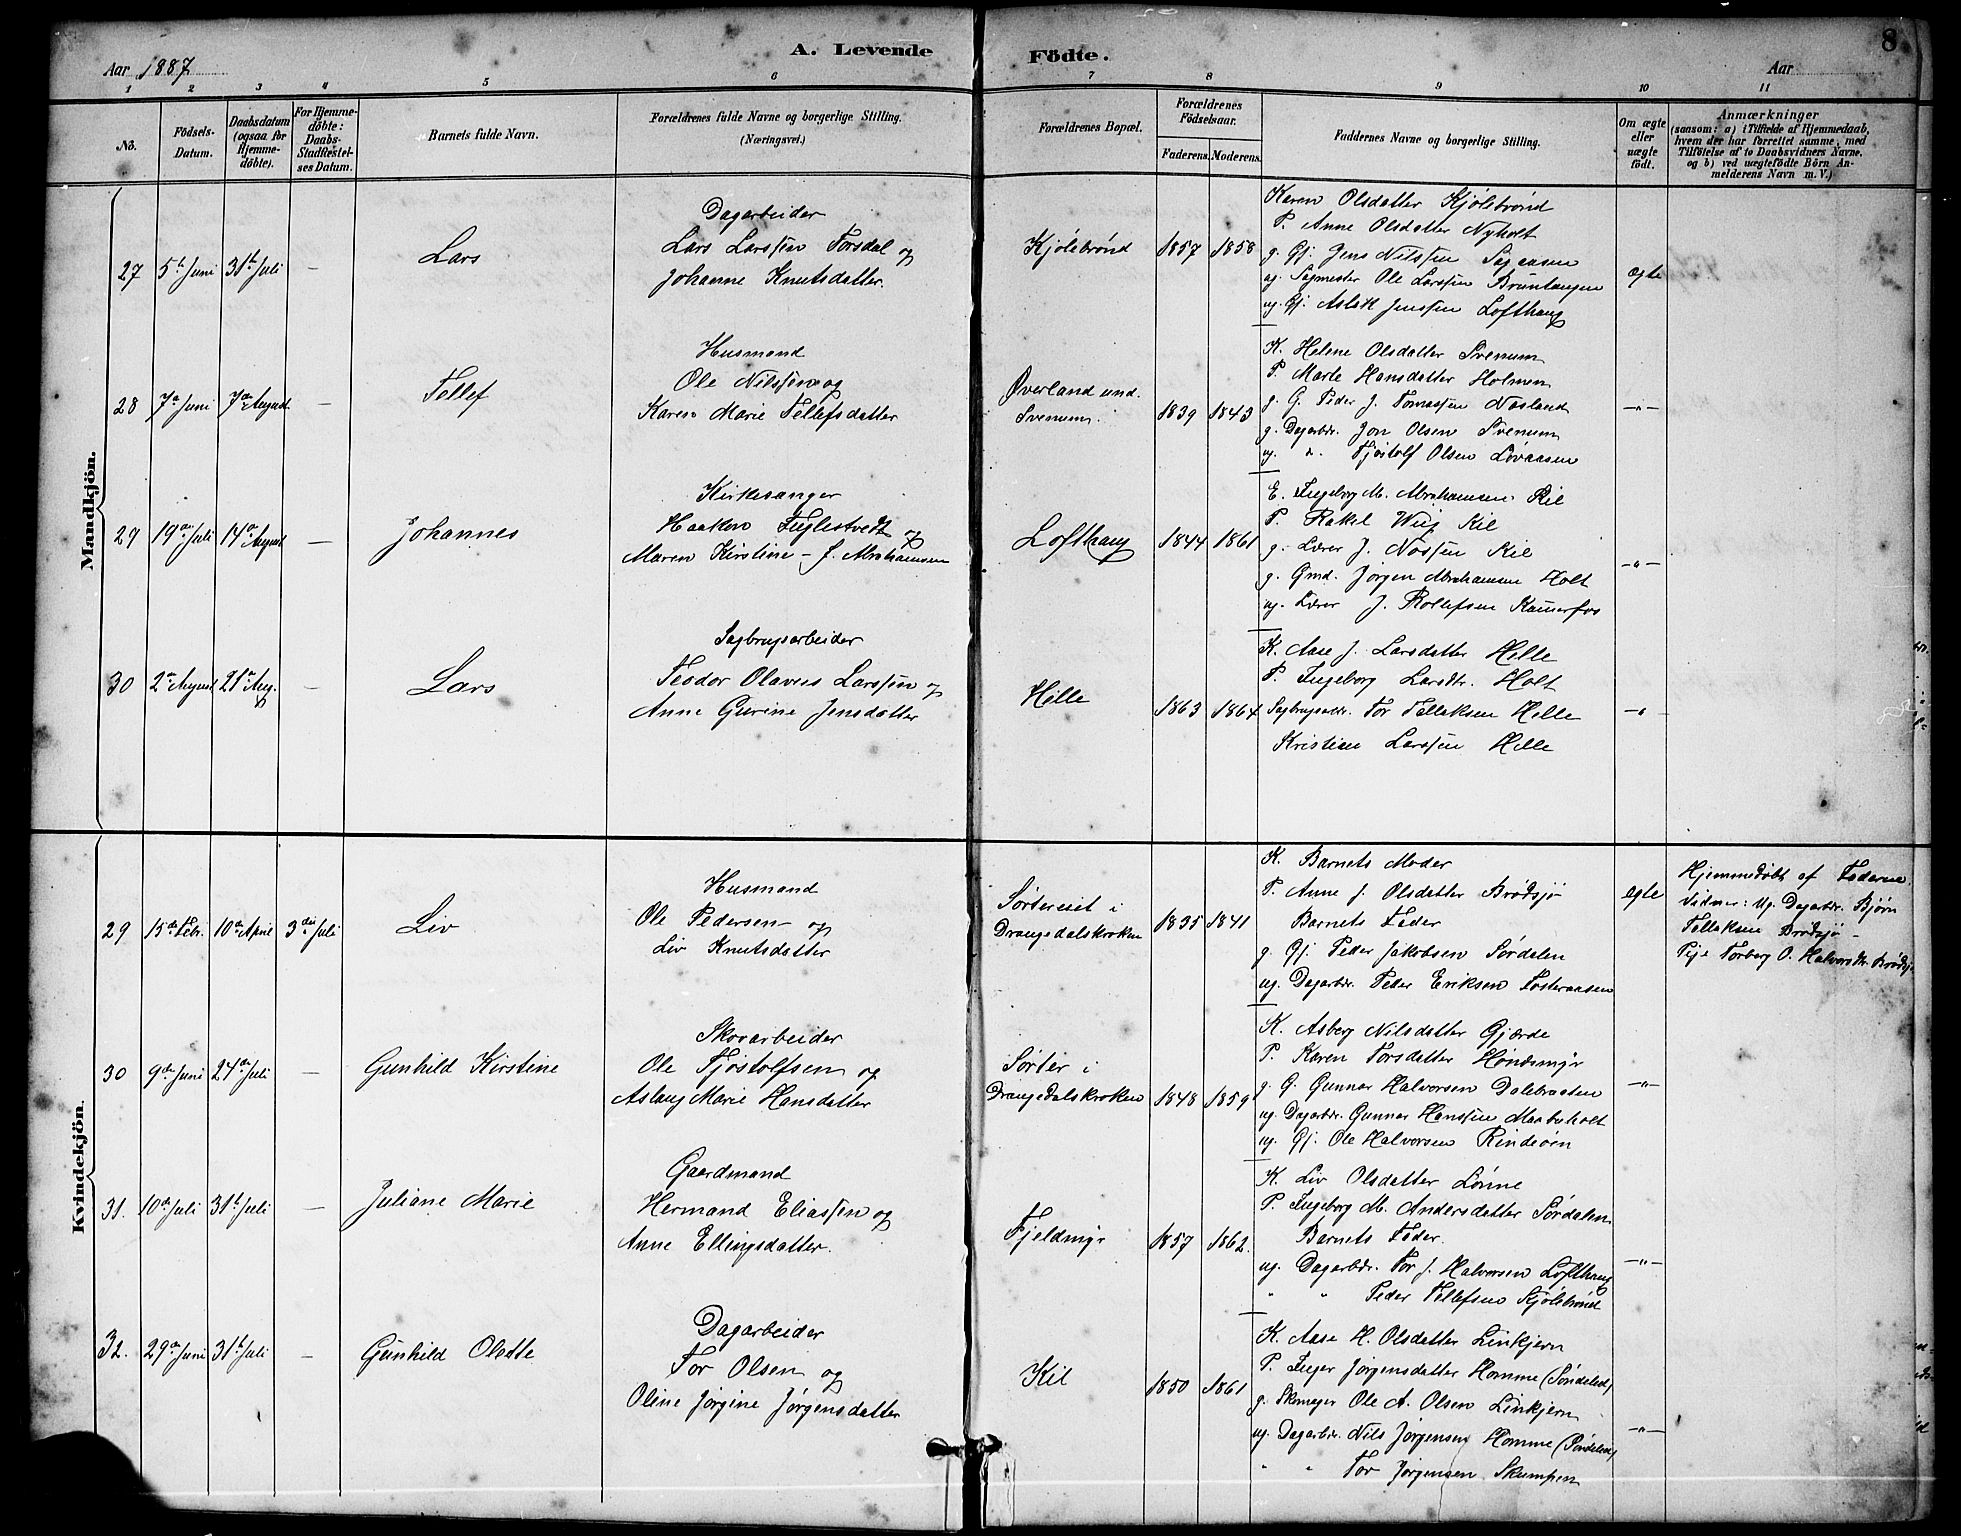 A. Levende Födte.
8
Aar 1887
Aar
1 2 3 4 5 6 7 8 9 10 11
No.
Födsels-Datum.
Daabsdatum (ogsaa for Hjemme-döbte).
For Hjemme-döbte: Daabs-Stadfæstel-ses Datum.
Barnets fulde Navn.
Forældrenes fulde Navne og borgerlige Stilling. (Næringsvei.)
Forældrenes Bopæl.
Forældrenes Födselsaar.
Faderens. Moderens.
Faddernes Navne og borgerlige Stilling.
Om ægte eller uægte født.
Anmærkninger
(saasom: a) i Tilfælde af Hjemmedaab,
hvem der har forrettet samme, med
Tilföielse af to Daabsvidners Navne,
og b) ved uægtefödte Börn An-
melderens Navn m. V.)
Mandkjön.
27 5te Juni 31te Juli — Lars
Dagarbeider
Lars Larssen Torsdal og
Johanne Knutsdatter.
Kjølebrønd 1857 1858
Karen Olsdatter Kjølebrønd
P. Anne Olsdatter Nyholt
g. Gj. Jens Nilssen Sagaasen
ug. Sagmester Ole Larssen Bruntangen
ug. Gj. Aslak Jenssen Lofthaug
ægte
28 7de Juni 7de August — Tellef
Husmand
Ole Nilssen og
Karen Marie Tellefsdatter
Øverland und.
Svenum. 1839 1843
K. Helene Olsdatter Svenum
P. Marte Hansdatter Holmen
g. G. Peder J. Tomassen Nasland
g. Dagarbdr. Jon Olsen Svenum
ug. d. Fjøstolf Olsen Løvaasen
—"—
29 19de Juli 14de August — Johannes
Kirkesanger
Haakon Fuglestvedt og
Maren Kirstine f. Abrahamsen
Lofthaug 1844 1861
E. Ingeborg M. Abrahamsen Kil
P. Rakel Wiig Kil
g. Lærer J. Nossen Kil
g. Gmd. Jørgen Abrahamsen Holt
ug. Lærer J. Rollefsen Kamerfos
—"—
30 2den August 21de Aug. — Lars
Sagbrugsarbeider
Teodor Olaves Larssen og
Anne Gurine Jensdatter
Helle 1863 1864
K. Aase J. Larsdatter Helle
P. Ingeborg Larsdtr. Holt
Sagbrugsarbdr. Tor Tellefsen Helle
Kristian Larssen Helle
—"—
Kvindekjön.
29 15de Febr. 10de April 3die Juli Liv
Husmand
Ole Pedersen og
Liv Knutsdatter
Sørtereiet i
Drangedalskroken 1835 1841
K. Barnets Moder
P. Anne J. Olsdatter Brødsjø
Barnets Fader
g. Gj. Peder Jakobsen Sørdalen
ug. Dagarbdr. Peder Eriksen Fosteraasen
ægte
Hjemmedøbt af Faderen.
Vidner: Ug. Dagarbdr. Bjørn
Tellefsen Brødsjø —
Pige Torberg O. Halvorsdtr. Brødsj
30 9de Juni 24de Juli — Gunhild Kirstine
Skovarbeider
Ole Fjøstolfsen og
Aslaug Marie Hansdatter
Sørter i
Drangedalskroken 1848 1859
K. Asberg Nilsdatter Gjærde
P. Karen Torsdatter Hondsmyr
g. G. Gunnar Halvorsen Dalebraaten
ug. Dagarbdr. Gunnar Hanssen Maabuholt
ug. Gj. Ole Halvorsen Rindeørn
—"—
31. 10de Juli 31te Juli — Juliane Marie
Gaardmand
Hermand Eliassen og
Anne Ellingsdatter.
Fjeldmyr 1857 1862.
K. Liv Olsdatter Lønne
P. Ingeborg M. Andersdatter Sørdalen
Barnets Fader.
ug. Dagarbdr. Tor J. Halvorsen Lofthaug
" " Peder Tellefsen Kjølebrønd
—"—
32. 29de Juni 31te Juli — Gunhild Oledte
Dagarbeider
Tor Olsen og
Oline Jørgine Jørgensdatter
Kil 1850 1861
K. Aase H. Olsdatter Linkjern
P. Inger Jørgensdatter Homme (Søndeled)
g. Skomager Ole A. Olsen Linkjern
ug. Dagarbdr. Nils Jørgensen Homme (Søndeled)
" " Tor Jørgensen Skumpen
—"—